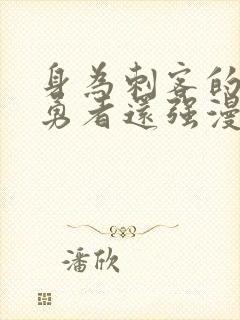 身為刺客的
勇者還強漫
潘欣